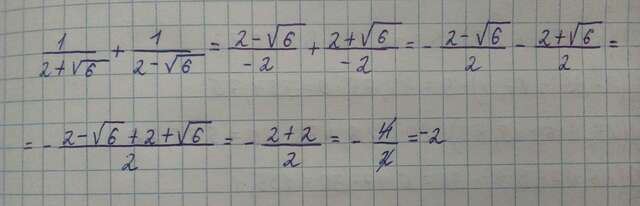 1/(2+√6) + 1/(2-√6) = (2-√6)/(-2) + (2+√6)/(-2) = - (2-√6)/2 - (2+√6)/2 =
= - (2-√6+2+√6)/2 = - (2+2)/2 = - 4/2 = -2